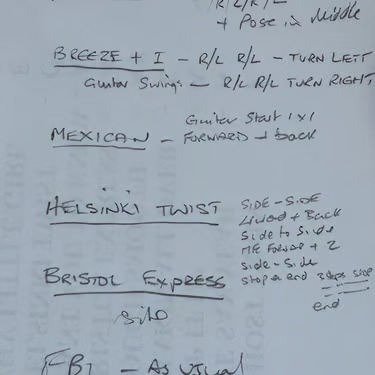 R/L/R/L
+ Pose in Middle
BREEZE + I - R/L R/L - TURN LEFT
Guitar Swings - R/L R/L TURN RIGHT
Guitar Start 1x1
MEXICAN - FORWARD + back
HELSINKI TWIST
SIDE - SIDE
+ Back
Side to Side
ME Forwad + 2
BRISTOL EXPRESS
side - Side
stop @ end 3 steps stop
end
FBI - AS USUAL